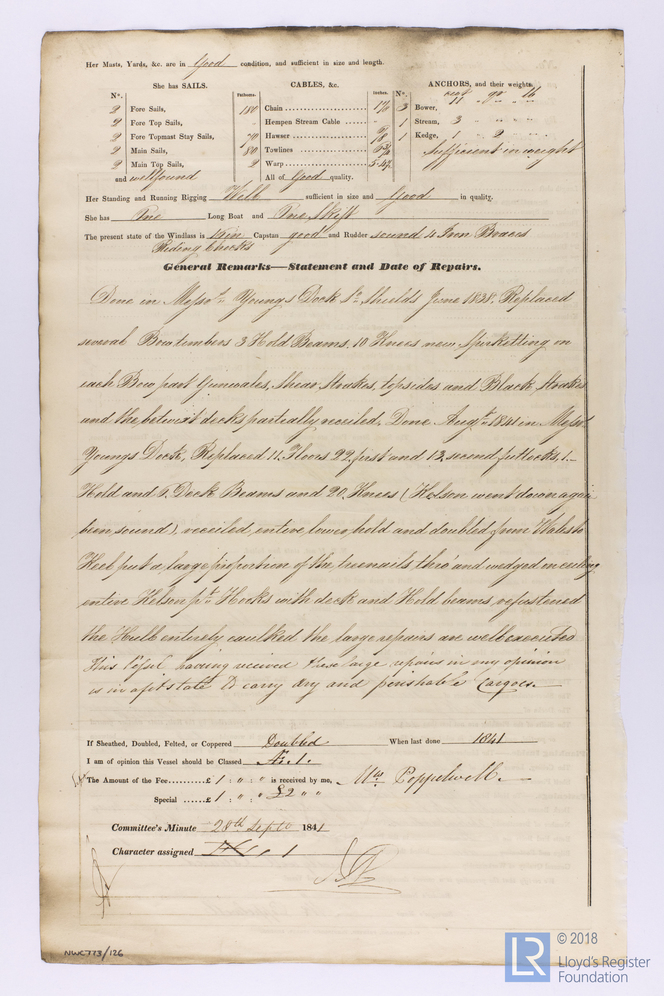 Her Masts, Yards, &c. are in Good condition, and sufficient in size and length.
She has SAILS.
CABLES, &c.
ANCHORS, and their weights.
No.
Fathoms.
Inches.
No.
2 Fore Sails,
2 Fore Top Sails,
2 Fore Topmast Stay Sails,
2 Main Sails,
2 Main Top Sails,
and well found
Chain 180
Hempen Stream Cable
Hawser
Towlines 80
Warp
All of Good quality.
3 Bower,
1 Stream, 3 " "
1 Kedge, 1 " 2 "
Sufficient in weight
Her Standing and Running Rigging Well sufficient in size and Good in quality.
She has One Long Boat and One Skiff
The present state of the Windlass is Capstan good and Rudder sound 4 Iron Braces
Riding Checks
General Remarks—Statement and Date of Repairs.
Done in Messrs Youngs Dock So Shields June 1838. Replaced
several Bow timbers 3 Hold Beams, 10 Knees new, Spirketting on
each Bow part Gunwales, Shear Strakes, topsides and Black Strakes
and the betwixt decks partially receiled. Done Augt 1841 in Messrs
Youngs Dock, Replaced 11 Floors 22 first and 13 second futtocks, 1
Hold and Deck Beams and 20 Knees (Kelson went down again
been sound), receiled entire lower hold and doubled from Wales to
Keel put a large proportion of the treenails thro' and wedged in ceiling
entire Kelson pt Hooks with deck and Hold beams, refastened
the Hull entirely caulked the large repairs are well executed
This Vessel having received these large repairs in my opinion
is in a fit state to carry dry and perishable Cargoes.
If Sheathed, Doubled, Felted, or Coppered Doubled When last done 1841
I am of opinion this Vessel should be Classed Æ. 1.
The Amount of the Fee £ 1 : " : " is received by me, Wm Poppelwell.
Special £ 1 : " : " £2 " "
Committee's Minute 28th Sept 1841
Character assigned Æ 1
NWC773/126
LR
© 2018
Lloyd's Register
Foundation